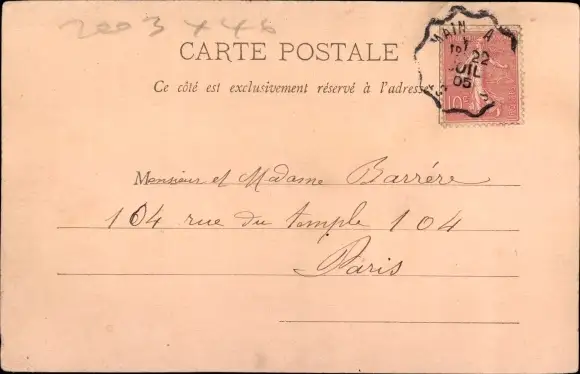 2003 x 46
CARTE POSTALE
Ce côté est exclusivement réservé à l'adresse
MAIN A
22
JUIL
05
10
Monsieur et Madame Barrére
104 rue du temple 104
Paris